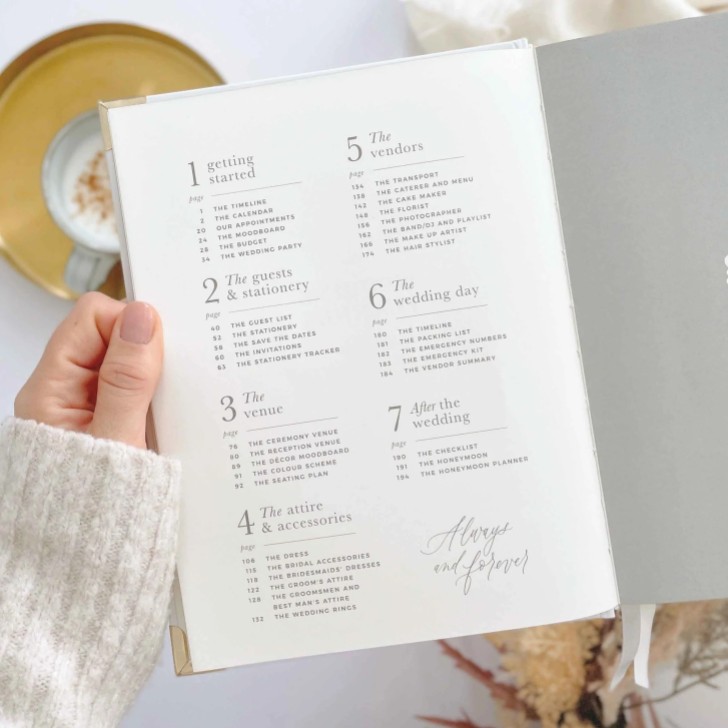 1 getting
started
page
1 THE TIMELINE
2 THE CALENDAR
20 OUR APPOINTMENTS
24 THE MOODBOARD
28 THE BUDGET
34 THE WEDDING PARTY
2 The guests
& stationery
page
40 THE GUEST LIST
52 THE STATIONERY
58 THE SAVE THE DATES
60 THE INVITATIONS
63 THE STATIONERY TRACKER
3 The
venue
page
76 THE CEREMONY VENUE
80 THE RECEPTION VENUE
89 THE DÉCOR MOODBOARD
91 THE COLOUR SCHEME
92 THE SEATING PLAN
4 The attire
& accessories
page
106 THE DRESS
115 THE BRIDAL ACCESSORIES
119 THE BRIDESMAIDS' DRESSES
122 THE GROOM'S ATTIRE
126 THE GROOMSMEN AND
BEST MAN'S ATTIRE
132 THE WEDDING RINGS
5 The
vendors
page
134 THE TRANSPORT
138 THE CATERER AND MENU
142 THE CAKE MAKER
148 THE FLORIST
156 THE PHOTOGRAPHER
162 THE BAND/DJ AND PLAYLIST
166 THE MAKE UP ARTIST
174 THE HAIR STYLIST
6 The
wedding day
page
180 THE TIMELINE
181 THE PACKING LIST
182 THE EMERGENCY NUMBERS
183 THE EMERGENCY KIT
184 THE VENDOR SUMMARY
7 After the
wedding
page
190 THE CHECKLIST
191 THE HONEYMOON
194 THE HONEYMOON PLANNER
Always
and forever